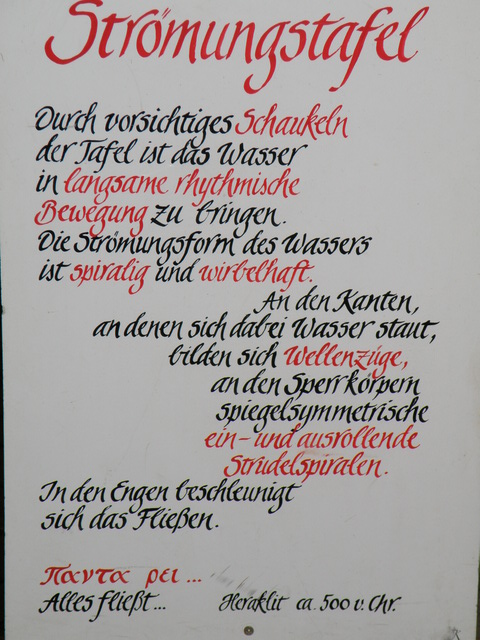 Strömungstafel
Durch vorsichtiges Schaukeln
der Tafel ist das Wasser
in langsame rhythmische
Bewegung zu bringen.
Die Strömungsform des Wassers
ist spiralig und wirbelhaft.
An den Kanten,
an denen sich dabei Wasser staut,
bilden sich Wellenzüge,
an den Sperrkörpern
spiegelsymmetrische
ein- und ausrollende
Strudelspiralen.
In den Engen beschleunigt
sich das Fließen.
Παντα ρει...
Alles fließt... Heraklit ca. 500 v. Chr.